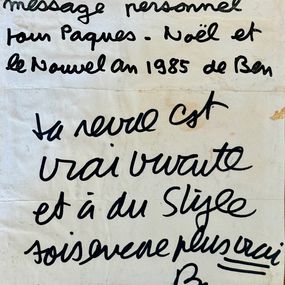 message personnel
pour Paques - Noël et
le Nouvel an 1985 de Ben
ta revue est
vrai vivante
et à du Style
sois encore plus vrai
Be